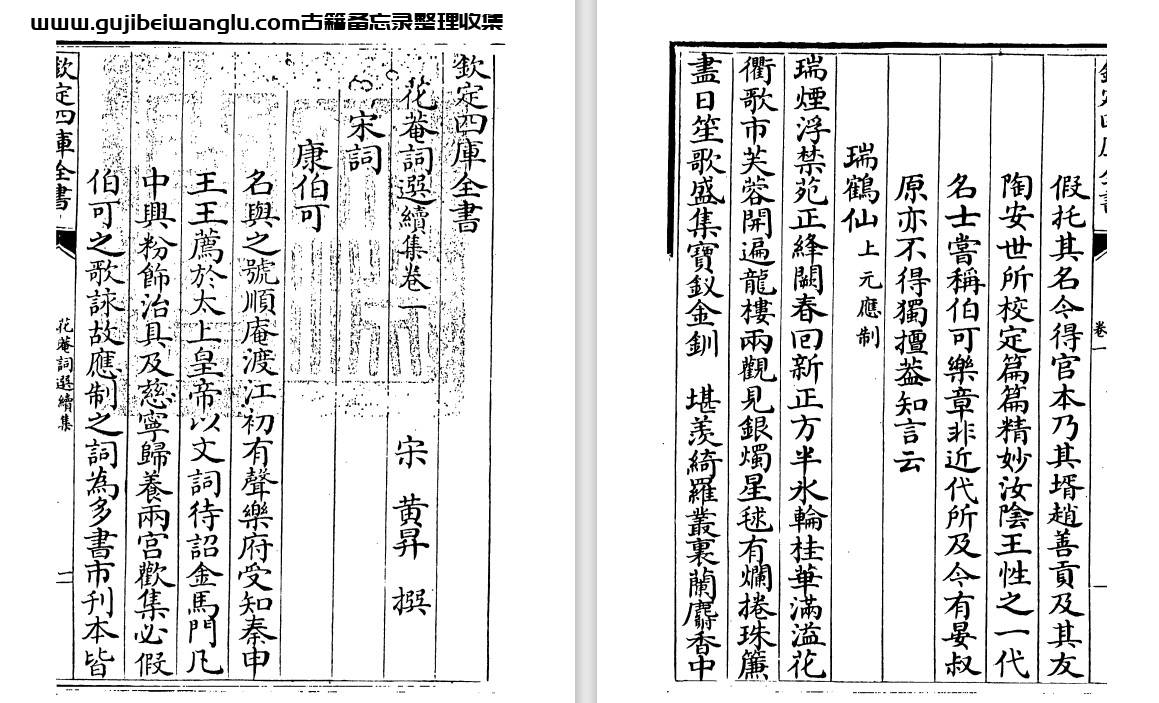 www.gujibeiwanglu.com古籍备忘录整理收集
欽定四庫全書
花菴詞選續集卷一
宋 黄昇 撰
宋詞
康伯可
名與之號順庵渡江初有聲樂府受知秦申
王王薦於太上皇帝以文詞待詔金馬門凡
中興粉飾治具及慈寧歸養兩宫歡集必假
伯可之歌詠故應制之詞為多書市刊本皆
欽定四庫全書
花菴詞選續集
一
卷一
一
假托其名今得官本乃其壻趙善貢及其友
陶安世所校定篇篇精妙汝陰王性之一代
名士嘗稱伯可樂章非近代所及今有晏叔
原亦不得獨擅葢知言云
瑞鶴仙上元應制
瑞煙浮禁苑正絳闕春回新正方半氷輪桂華滿溢花
衢歌市芙蓉開遍龍樓兩觀見銀燭星毬有爛捲珠簾
盡日笙歌盛集寶釵金釧 堪羨綺羅叢裏蘭麝香中